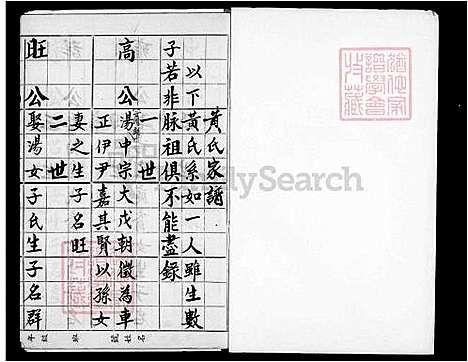 黃氏家譜
以下黃氏系如一人雖生數
子若非脉祖俱不能盡錄
一世
高公 湯中宗大戊朝徵為車
正伊尹嘉其賢以孫女
妻之生子名旺
二世
旺公 娶湯女子氏生子名群
FamilySearch
譜學會